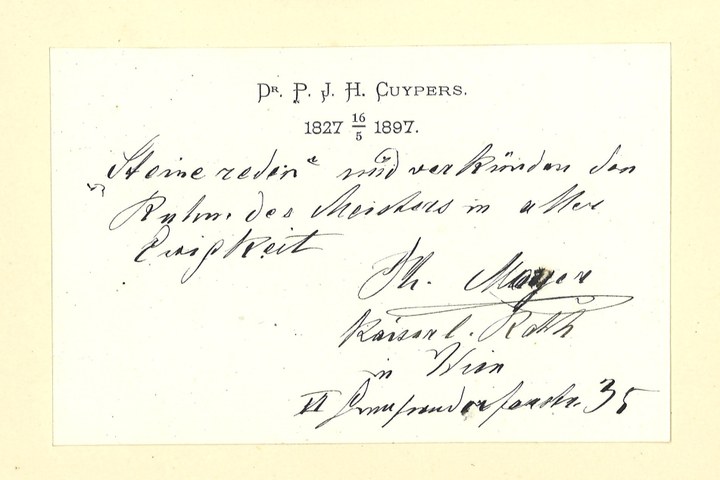 Dr. P. J. H. Cuypers.
1827 16/5 1897.
„Steine reden“ und verkünden den
Ruhm des Meisters in aller
Ewigkeit
Th. Mayer
Kaiserl. Rath
in Wien
VI Gumpendorferstr. 35